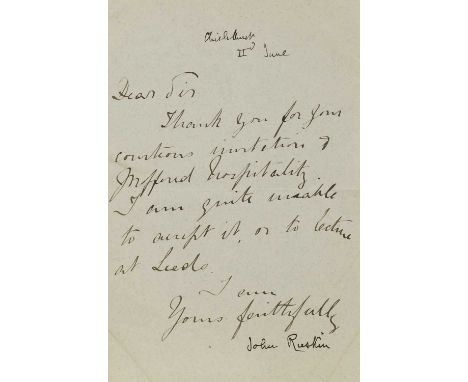 Chislehurst
11 June
Dear Sir
Thank you for your
courteous invitation &
proffered hospitality.
I am quite unable
to accept it, or to lecture
at Leeds.
I am
Yours faithfully
John Ruskin